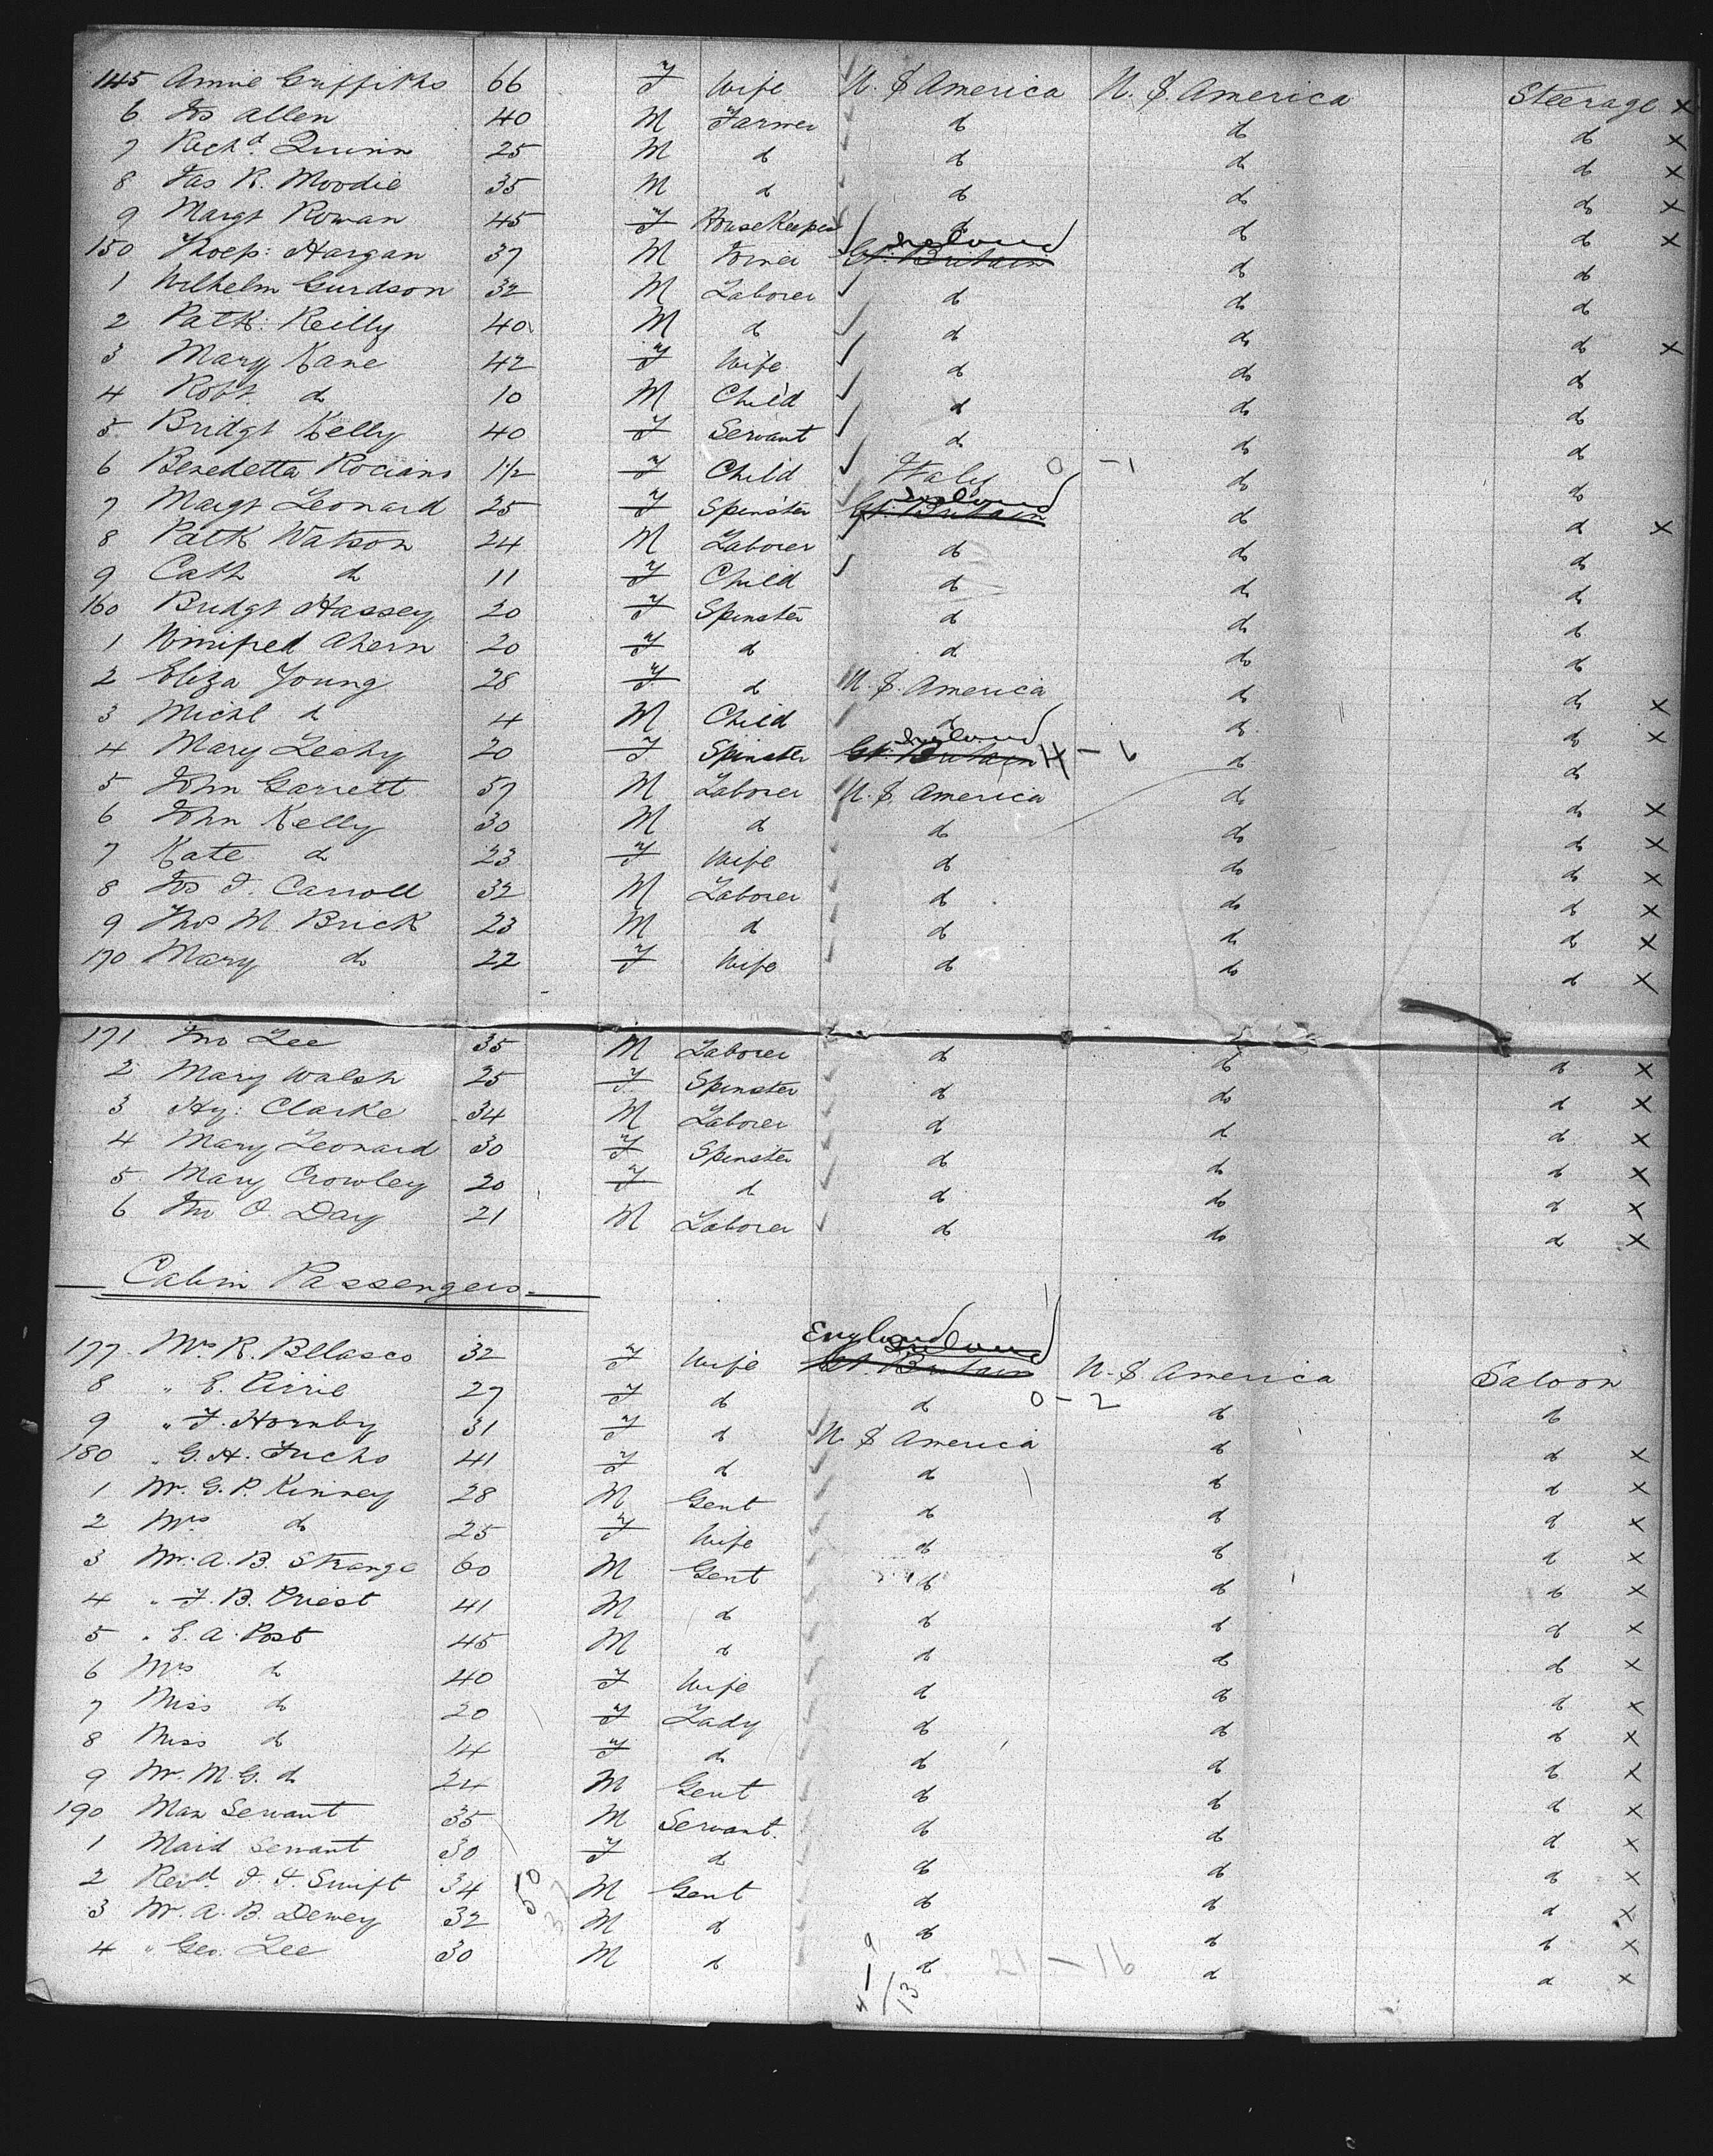 145 Annie Griffiths 66 F Wife U. S America U. S. America Steerage x
6 Jos Allen 40 M Farmer do do do x
7 Richd. Quinn 25 M do do do do x
8 Jas R. Moodie 35 M do do do do x
9 Margt Rowan 45 F HouseKeeper do do do x
150 Hargan 37 M Joiner Gt. Britain Ireland do do
1 Wilhelm Gurdson 32 M Laborer do do do
2 Patk: Reilly 40 M do do do do x
3 Mary Kane 42 F Wife do do do
4 Robt. do 10 M Child do do do
5 Bridgt Kelly 40 F Servant do do do
6 Benedetta Rocians 1½ F Child Italy 0 - 1 do do
7 Margt Leonard 25 F Spinster Gt. Britain Ireland do do x
8 Patk Watson 24 M Laborer do do do
9 Cath do 11 F Child do do do
160 Bridgt Hassey 20 F Spinster do do do
1 Winifred Ahern 20 F do do do do
2 Eliza Young 28 F do U. S. America do do x
3 Michl do 4 M Child do do do x
4 Mary Leahy 20 F Spinster Gt. Britain Ireland 4 - 6 do do
5 John Garrett 57 M Laborer U. S. America do do x
6 John Kelly 30 M do do do do x
7 Kate do 23 F Wife do do do x
8 Jos J. Carroll 32 M Laborer do do do x
9 Thos M. Brick 23 M do do do do x
170 Mary do 22 F Wife do do do x
171 Jno Lee 35 M Laborer do do do x
2 Mary Walsh 25 F Spinster do do do x
3 Hy: Clarke 34 M Laborer do do do x
4 Mary Leonard 30 F Spinster do do do x
5 Mary Crowley 20 F do do do do x
6 Jno O. Day 21 M Laborer do do do x
Cabin Passengers.
177 Mrs R. Bellasco 32 F Wife Gt. Britain Ireland England U. S America Saloon
8 " E. Pirrie 27 F do do 0 - 2 do do
9 " F. Hornby 31 F do U. S America do do x
180 " G. H. Fuchs 41 F do do do do x
1 Mr. G. P. Kinney 28 M Gent do do do x
2 Mrs do 25 F Wife do do do x
3 Mr. A. B. Strange 60 M Gent do do do x
4 " F. B. Priest 41 M do do do do x
5 " E. A. Post 45 M do do do do x
6 Mrs do 40 F Wife do do do x
7 Miss do 20 F Lady do do do x
8 Miss do 14 F do do do do x
9 Mr. M. G. do 24 M Gent do do do x
190 Man Servant 35 M Servant. do do do x
1 Maid Servant 30 F do do do do x
2 Revd. J. F. Swift 34 M Gent do do do x
3 Mr. A. B. Dewey 32 M do do do do x
4 " Geo. Lee 30 M do do do do x
50
37
21 - 16
4 - 9
13